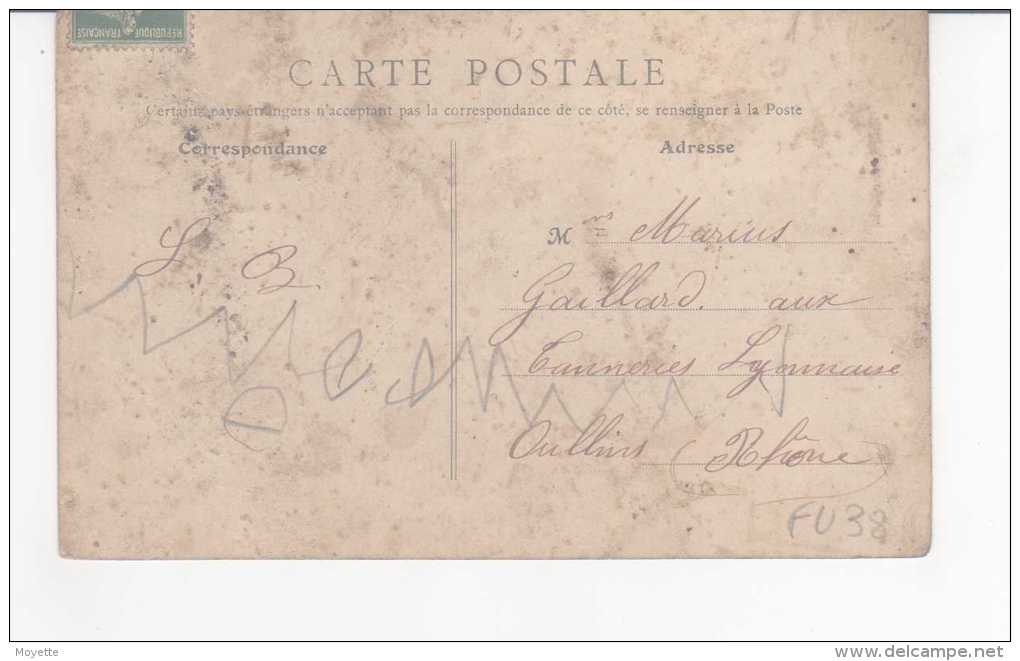 REPUBLIQUE FRANÇAISE
CARTE POSTALE
Certains pays étrangers n'acceptant pas la correspondance de ce côté, se renseigner à la Poste
Correspondance
Adresse
L. B.
M Marius
Gaillard. aux
Tanneries Lyonnaise
Oullins (Rhône)
FU38
Moyette
delcampe.net